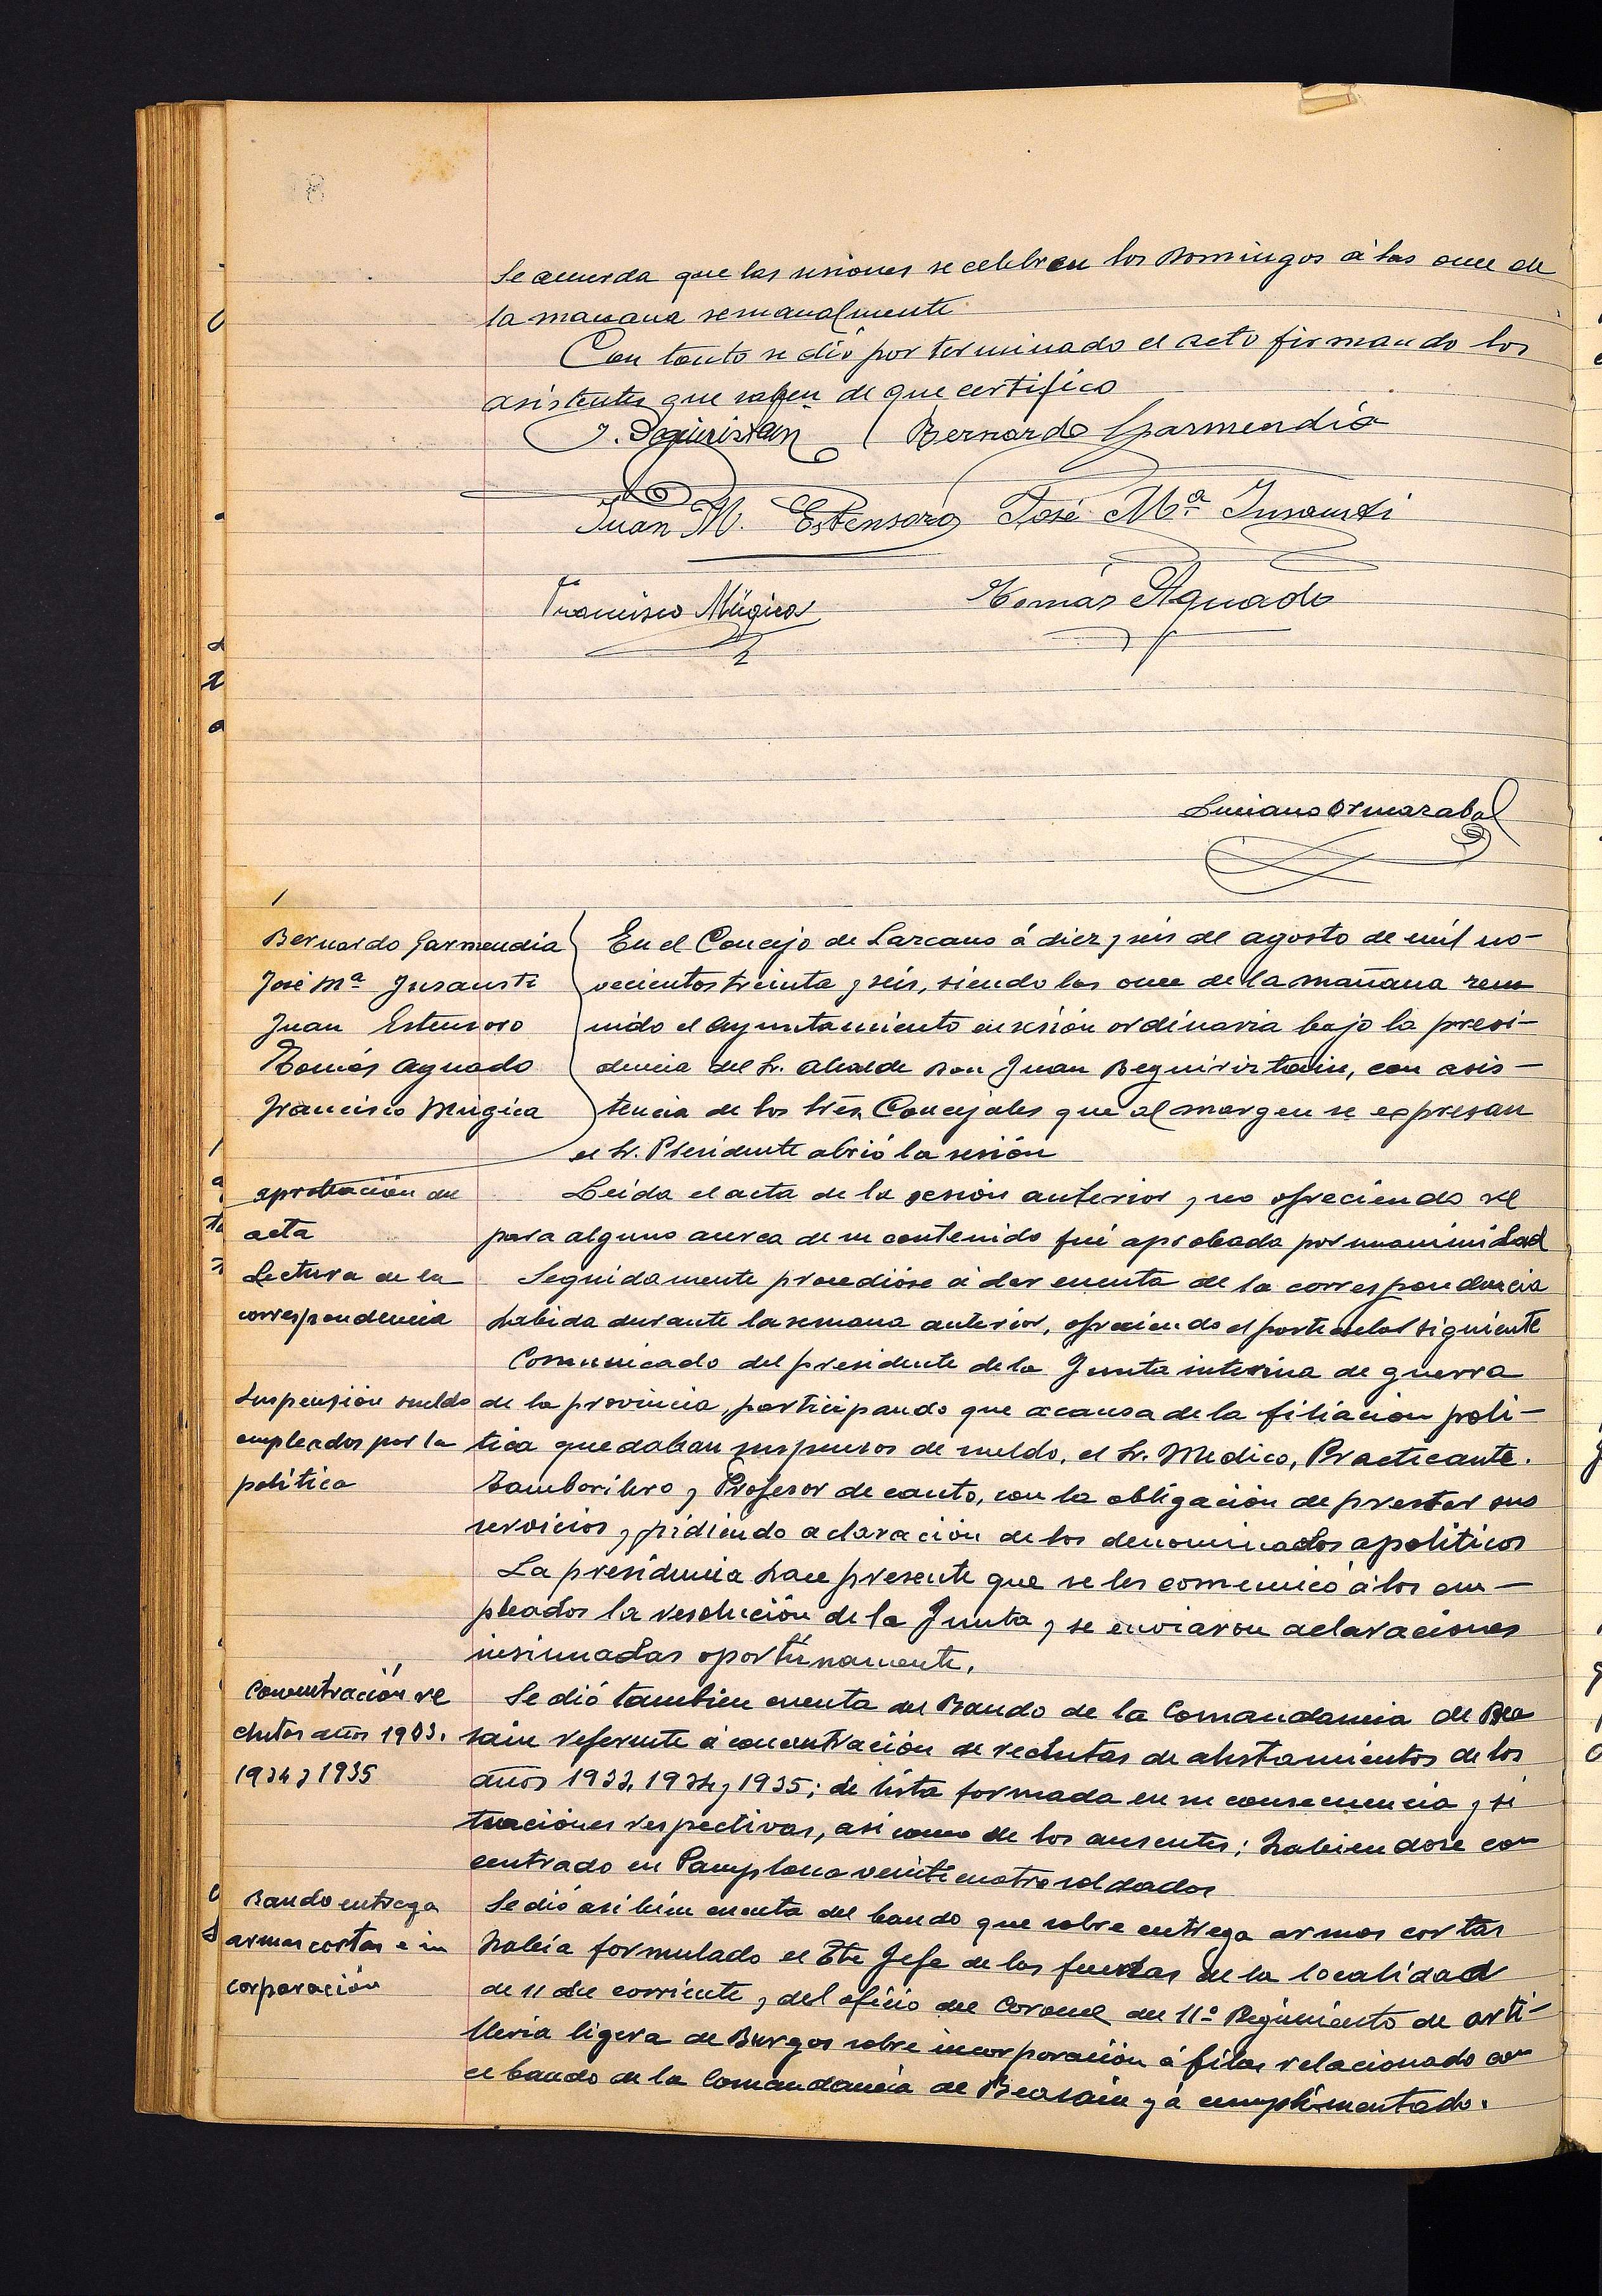 Se acuerda que las sesiones se celebren los Domingos á las once de
la mañana semanalmente
Con tanto se dió por terminado el acto firmando los
asistentes que saben de que certifico
Bernardo Garmendia
Juan M. Estensoro José Mª Insausti
Francisco Múgica Tomás Aguado
Luciano Ormazabal
Bernardo Garmendia
José Mª Insausti
Juan Estensoro
Tomás Aguado
Francisco Mugica
En el Concejo de Lazcano á diez y seis de agosto de mil no-
vecientos treinta y seis, siendo las once de la mañana reu
nido el Ayuntamiento en sesión ordinaria bajo la presi-
dencia del Sr. Alcalde Don Juan Beguiristain, con asis-
tencia de los Sres. Concejales que al margen se expresan
el Sr. Presidente abrió la sesión
aprobación del
acta
Leida el acta de la sesión anterior y no ofreciendo re
paro alguno acerca de su contenido fué aprobada por unanimidad
Lectura de la
correspondencia
Seguidamente procedióse á dar cuenta de la correspondencia
habida durante la semana anterior, ofreciendo el particular siguiente
Comunicado del presidente de la Junta interina de guerra
Suspensión sueldo
empleados por la
política
de la provincia, participando que a causa de la filiación poli-
tica quedaban suspensos de sueldo, el Sr. Medico, Practicante.
Tamborilero y Profesor de canto, con la obligación de prestar sus
servicios y pidiendo aclaración de los denominados apoliticos
La presidencia hace presente que se les comunicó á los em-
pleados la resolución de la Junta y se enviaron aclaraciones
insinuadas oportunamente.
Concentración re
clutas años 1933.
1934 y 1935
Se dió tambien cuenta del Bando de la Comandancia de Bea
sain referente á concentración de reclutas de alistamientos de los
años 1933, 1934 y 1935; de lista formada en su consecuencia y si
tuaciones respectivas, asi como de los ausentes; habiendose con
centrado en Pamplona veinticuatro soldados
Bando entrega
armas cortas e in
corporación
Se dió asi bien cuenta del bando que sobre entrega armas cortas
habia formulado el Tte Jefe de las fuerzas de la localidad
de 11 del corriente y del oficio del Coronel del 11º Regimiento de arti-
lleria ligera de Burgos sobre incorporación á filas relacionado con
el bando de la Comandancia de Beasain yá cumplimentado.